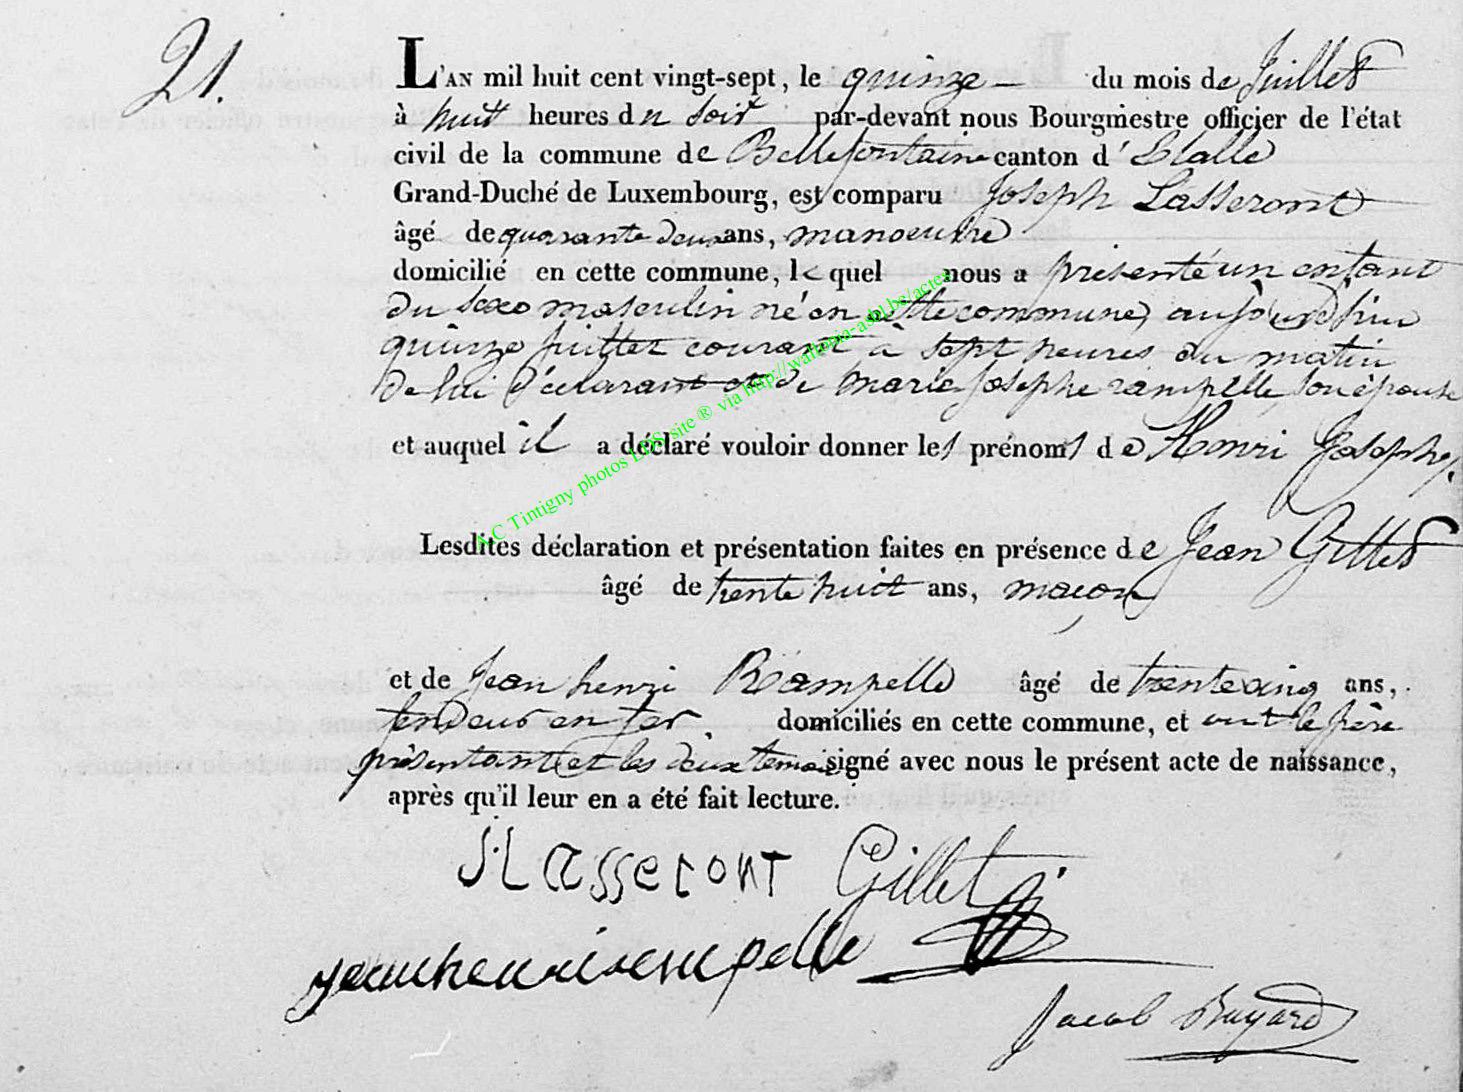 21.
L'AN mil huit cent vingt-sept, le quinze du mois de Juillet
à huit heures du soir par-devant nous Bourgmestre officier de l'état
civil de la commune de Bellefontaine canton d'Etalle
Grand-Duché de Luxembourg, est comparu Joseph Lasseront
âgé de quarante deux ans, manoeuvre
domicilié en cette commune, le quel nous a présenté un enfant
du sexe masculin né en cette commune, aujourd'hui
quinze juillet courant à sept heures du matin
de lui déclarant et de marie Josephe rampelle, son épouse
et auquel il a déclaré vouloir donner les prénoms de Henri Joseph,
Lesdites déclaration et présentation faites en présence de Jean Gillet
âgé de trente huit ans, maçon
et de Jean henri Rampelle âgé de trente cinq ans,
fendeur en fer domiciliés en cette commune, et ont le père
présentant et les deux temoins signé avec nous le présent acte de naissance,
après qu'il leur en a été fait lecture.
J. Lasseront Gillet
jean henri rempelle
Jacob Buyard
A.C Tintigny photos LDS site ® via http://wallonia-asbl.be/actes